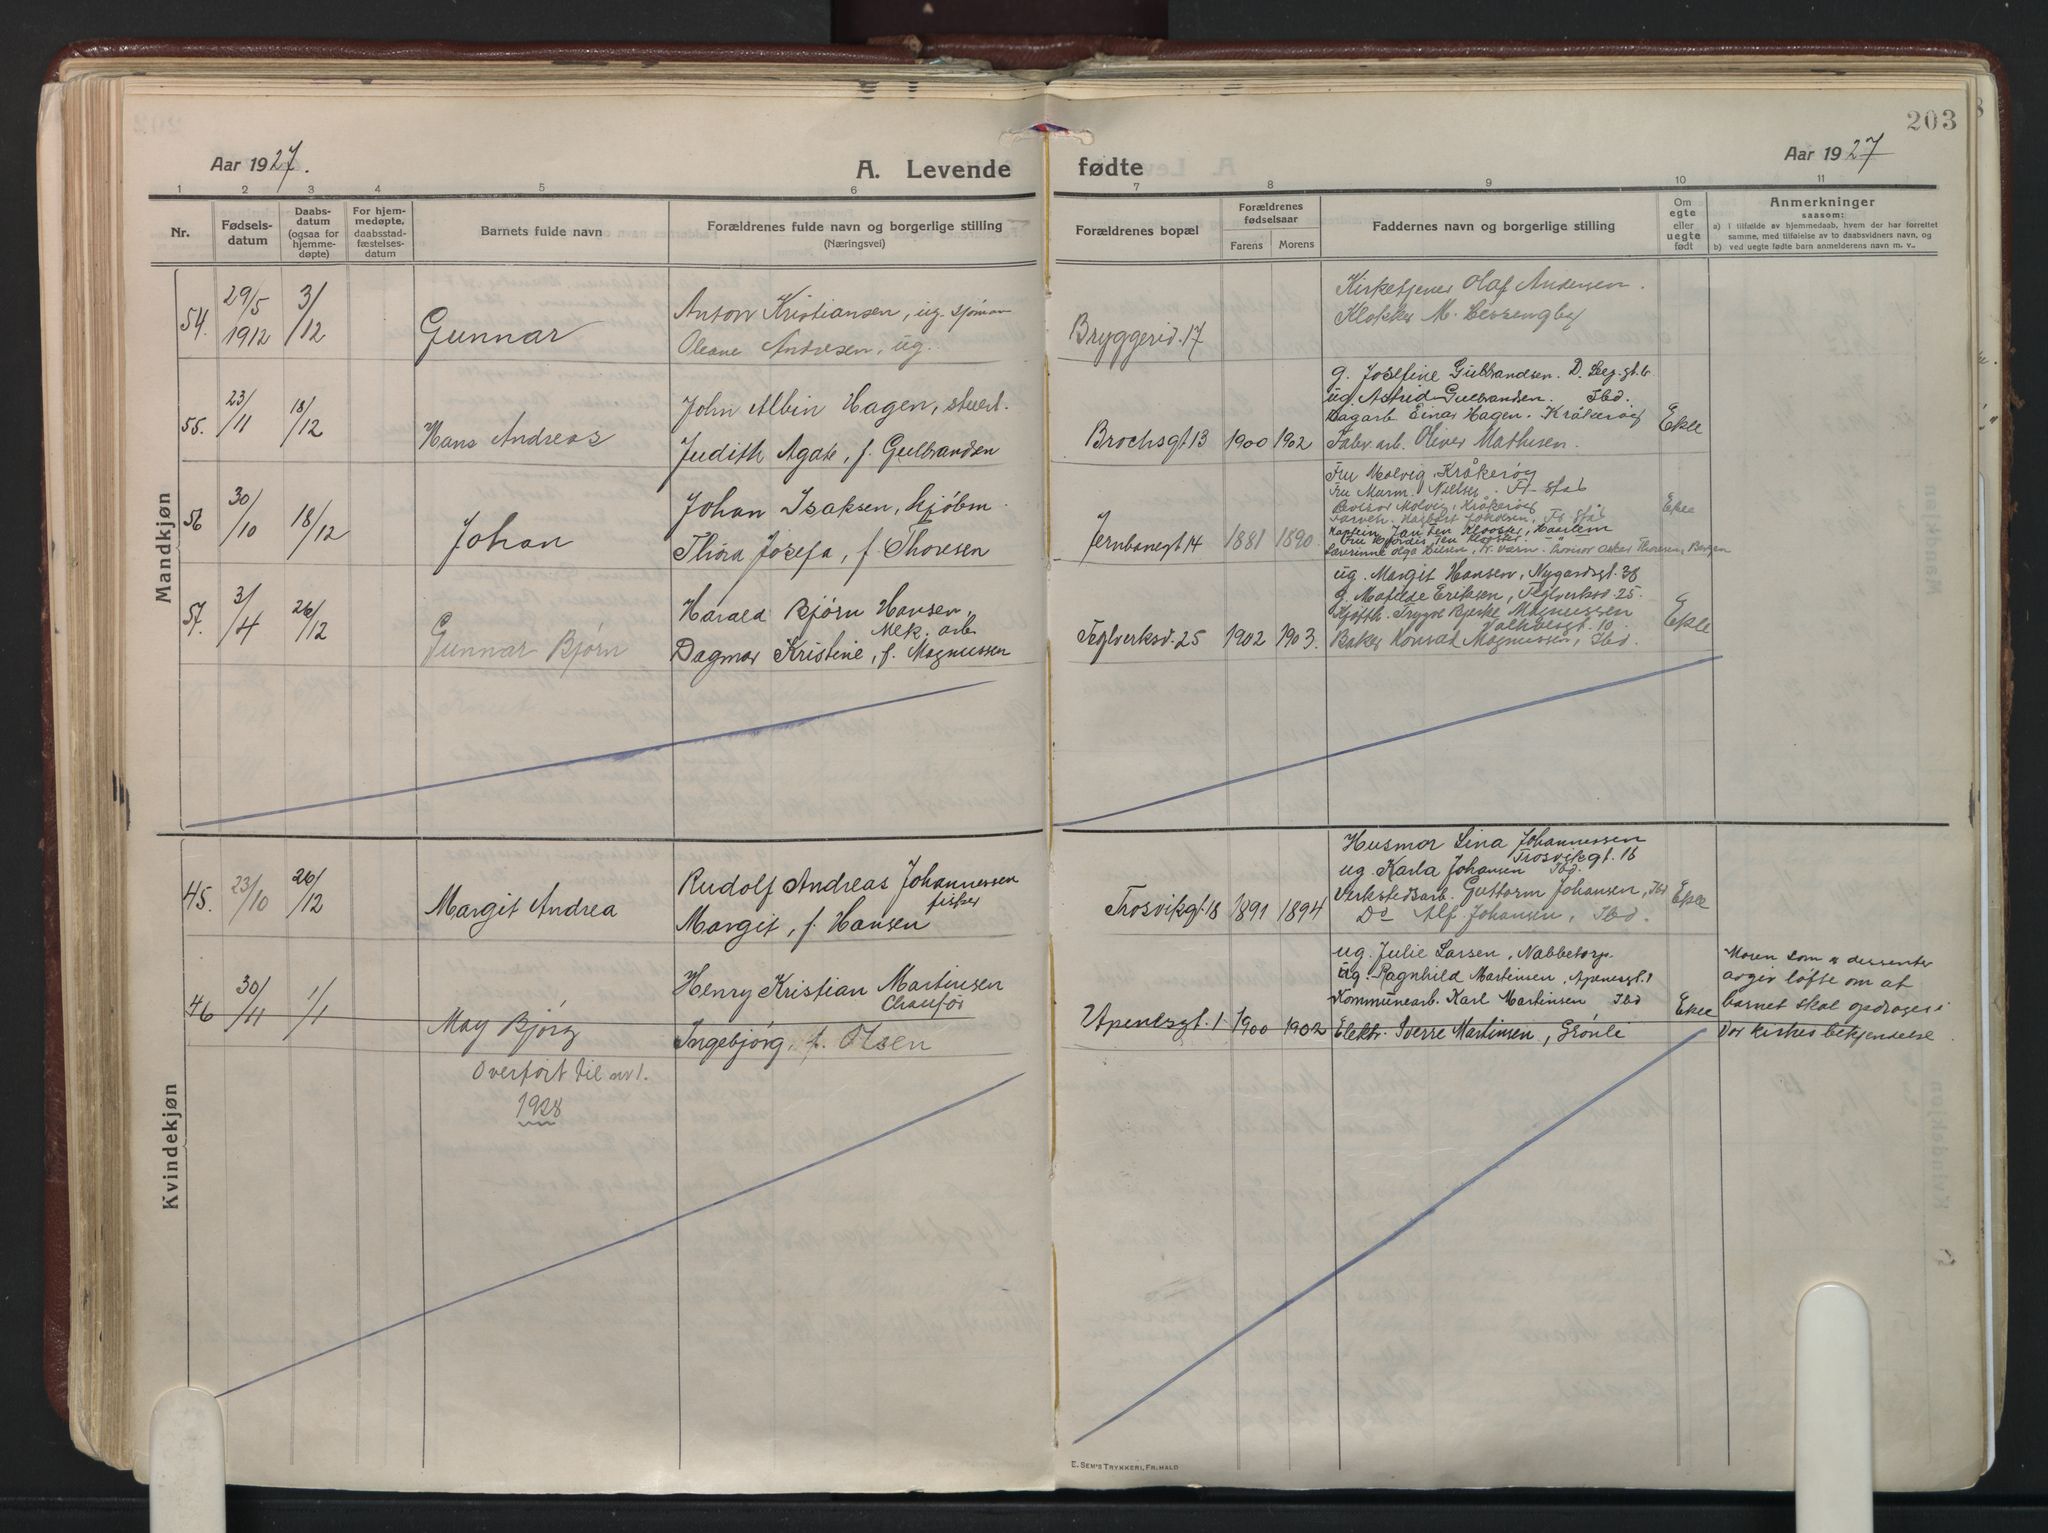 203
Aar 1927.
A. Levende fødte
Aar 1927
1 2 3 4 5 6 7 8 9 10 11
Nr.
Fødsels-
datum
Daabs-
datum
(ogsaa for
hjemme-
døpte)
For hjem-
medøpte,
daabsstad-
fæstelses-
datum
Barnets fulde navn
Forældrenes fulde navn og borgerlige stilling
(Næringsvei)
Forældrenes bopæl
Forældrenes
fødselsaar
Farens Morens
Faddernes navn og borgerlige stilling
Om
egte
eller
uegte
født
Anmerkninger
saasom:
a) i tilfælde av hjemmedaab, hvem der har forrettet
samme, med tilføielse av to daabsvidners navn, og
b) ved uegte fødte barn anmelderens navn m. v.,
Mandkjøn
54. 29/5 1912 3/12
Gunnar
Anton Kristiansen, ug. sjøman
Oleane Andresen, ug.
Bryggerid. 17
Kirketjener Olaf Andersen.
Klokker M.
55. 23/11 18/12
Hans Andreas
John Albin Hagen, stuert.
Judith Agate, f. Gulbrandsen
Brochsgt 13 1900 1902
g. Josefine Gulbrandsen.
ug. Astrid Gulbrandsen. Ibd.
Dagarb. Einar Hagen. Kråkerøy
Fabr arb. Oliver Mathisen.
Ekte
56 30/10 18/12
Johan
Johan Isaksen, kjøbm.
Thora Josefa, f. Thoresen
Jernbanegt 14 1881 1890
Fru Molvig, Kråkerøy
Fru Murm. Nielsen, Fr. stad
Revisor Molvig, Kråkerøy
Kaptein Jan ten Klooster, Haarlem
Fru Hjørdis ten Klooster
Ekte
57. 3/4 26/12
Gunnar Bjørn
Harald Bjørn Hansen,
Mek. arb
Dagmar Kristine, f. Magnussen
Teglverksd. 25 1902 1903.
ug. Margit Hansen, Nygardsgt. 38
g. Matilde Eriksen, Teglverksd. 25.
Kjøtth. Trygve Bjerke Magnussen
10.
Baker Konrad Magnussen, Ibd.
Ekte
Kvindekjøn
45. 23/10 26/12
Margit Andrea
Rudolf Andreas Johannessen
fisker
Margit, f. Hansen
Trosvikgt 18 1891 1894
Husmor Lina Johannessen
Trosvikgt. 16
ug. Karla Johansen Ibd.
Verkstedsarb. Guttorm Johansen, Ibd
Do Alf Johansen, Ibd.
Ekte
46 30/11 1/1
May Bjørg
Henry Kristian Martinsen
Chauffør
Ingebjørg, f. Olsen
Apenesgt. 1 1900 1902
ug. Julie Larsen, Nabbetorp.
ug. Ragnhild Martinsen, Apenesgt. 1
Kommunearb. Karl Martinsen Ibd
Elektr. Sverre Martinsen, Grønli
Ekte
Moren som er dissenter
avgir løfte om at
barnet skal opdrages i
vor kirkes bekjendelse.
Overført til nr 1.
1928
E. SEM'S TRYKKERI, FR.HALD